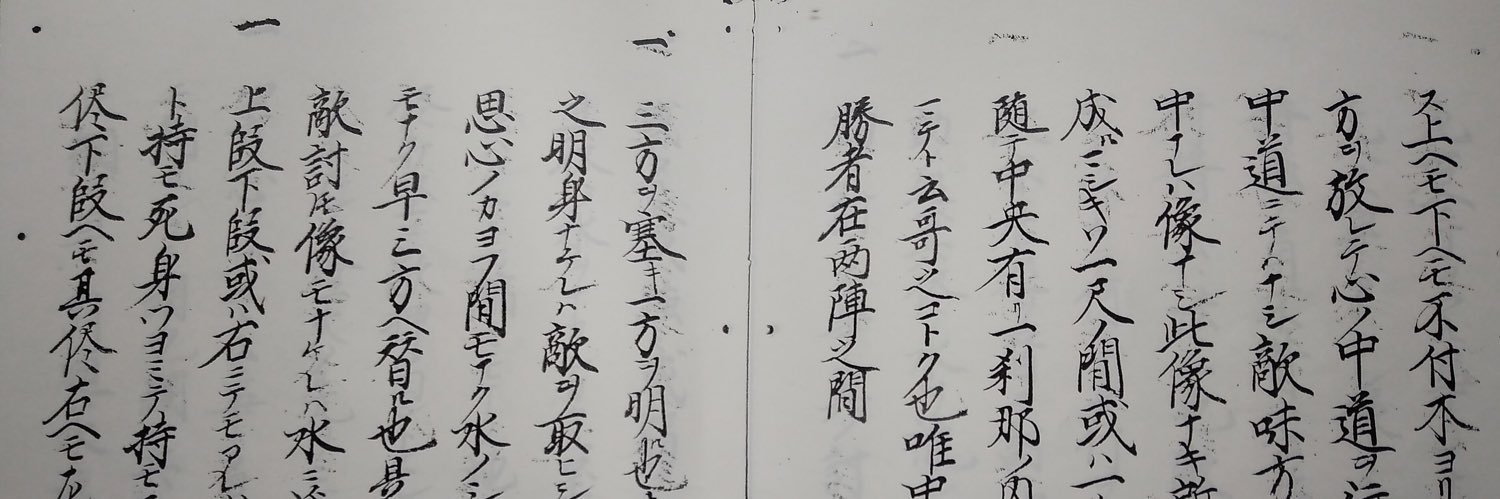 ス上ヘモ下ヘモ不付不ヨリ
方ヲ放レテ心ノ中道ヲ
中道ニテハナシ敵味方
中ナレハ像ナシ此像ナキ所
成ハミシキソ一尺ノ間或ハ一
随テ中央有リ一刹那ノ内
ニテト云哥之コトク也唯中
勝者在両陣之間
一
三方ヲ塞キ一方ヲ明ル也
之明身ナケレハ敵ヲ取ヒシ
思心ノカヨフ間モナク水ノシ
モナク早ミ方ヘ替ル也是
敵討トモ像モナケレハ水ミ
一
上段下段或ハ右ニテモアレ
ト持モ死身ツヨミテ持モ
侭下段ヘモ其侭右ヘモ左